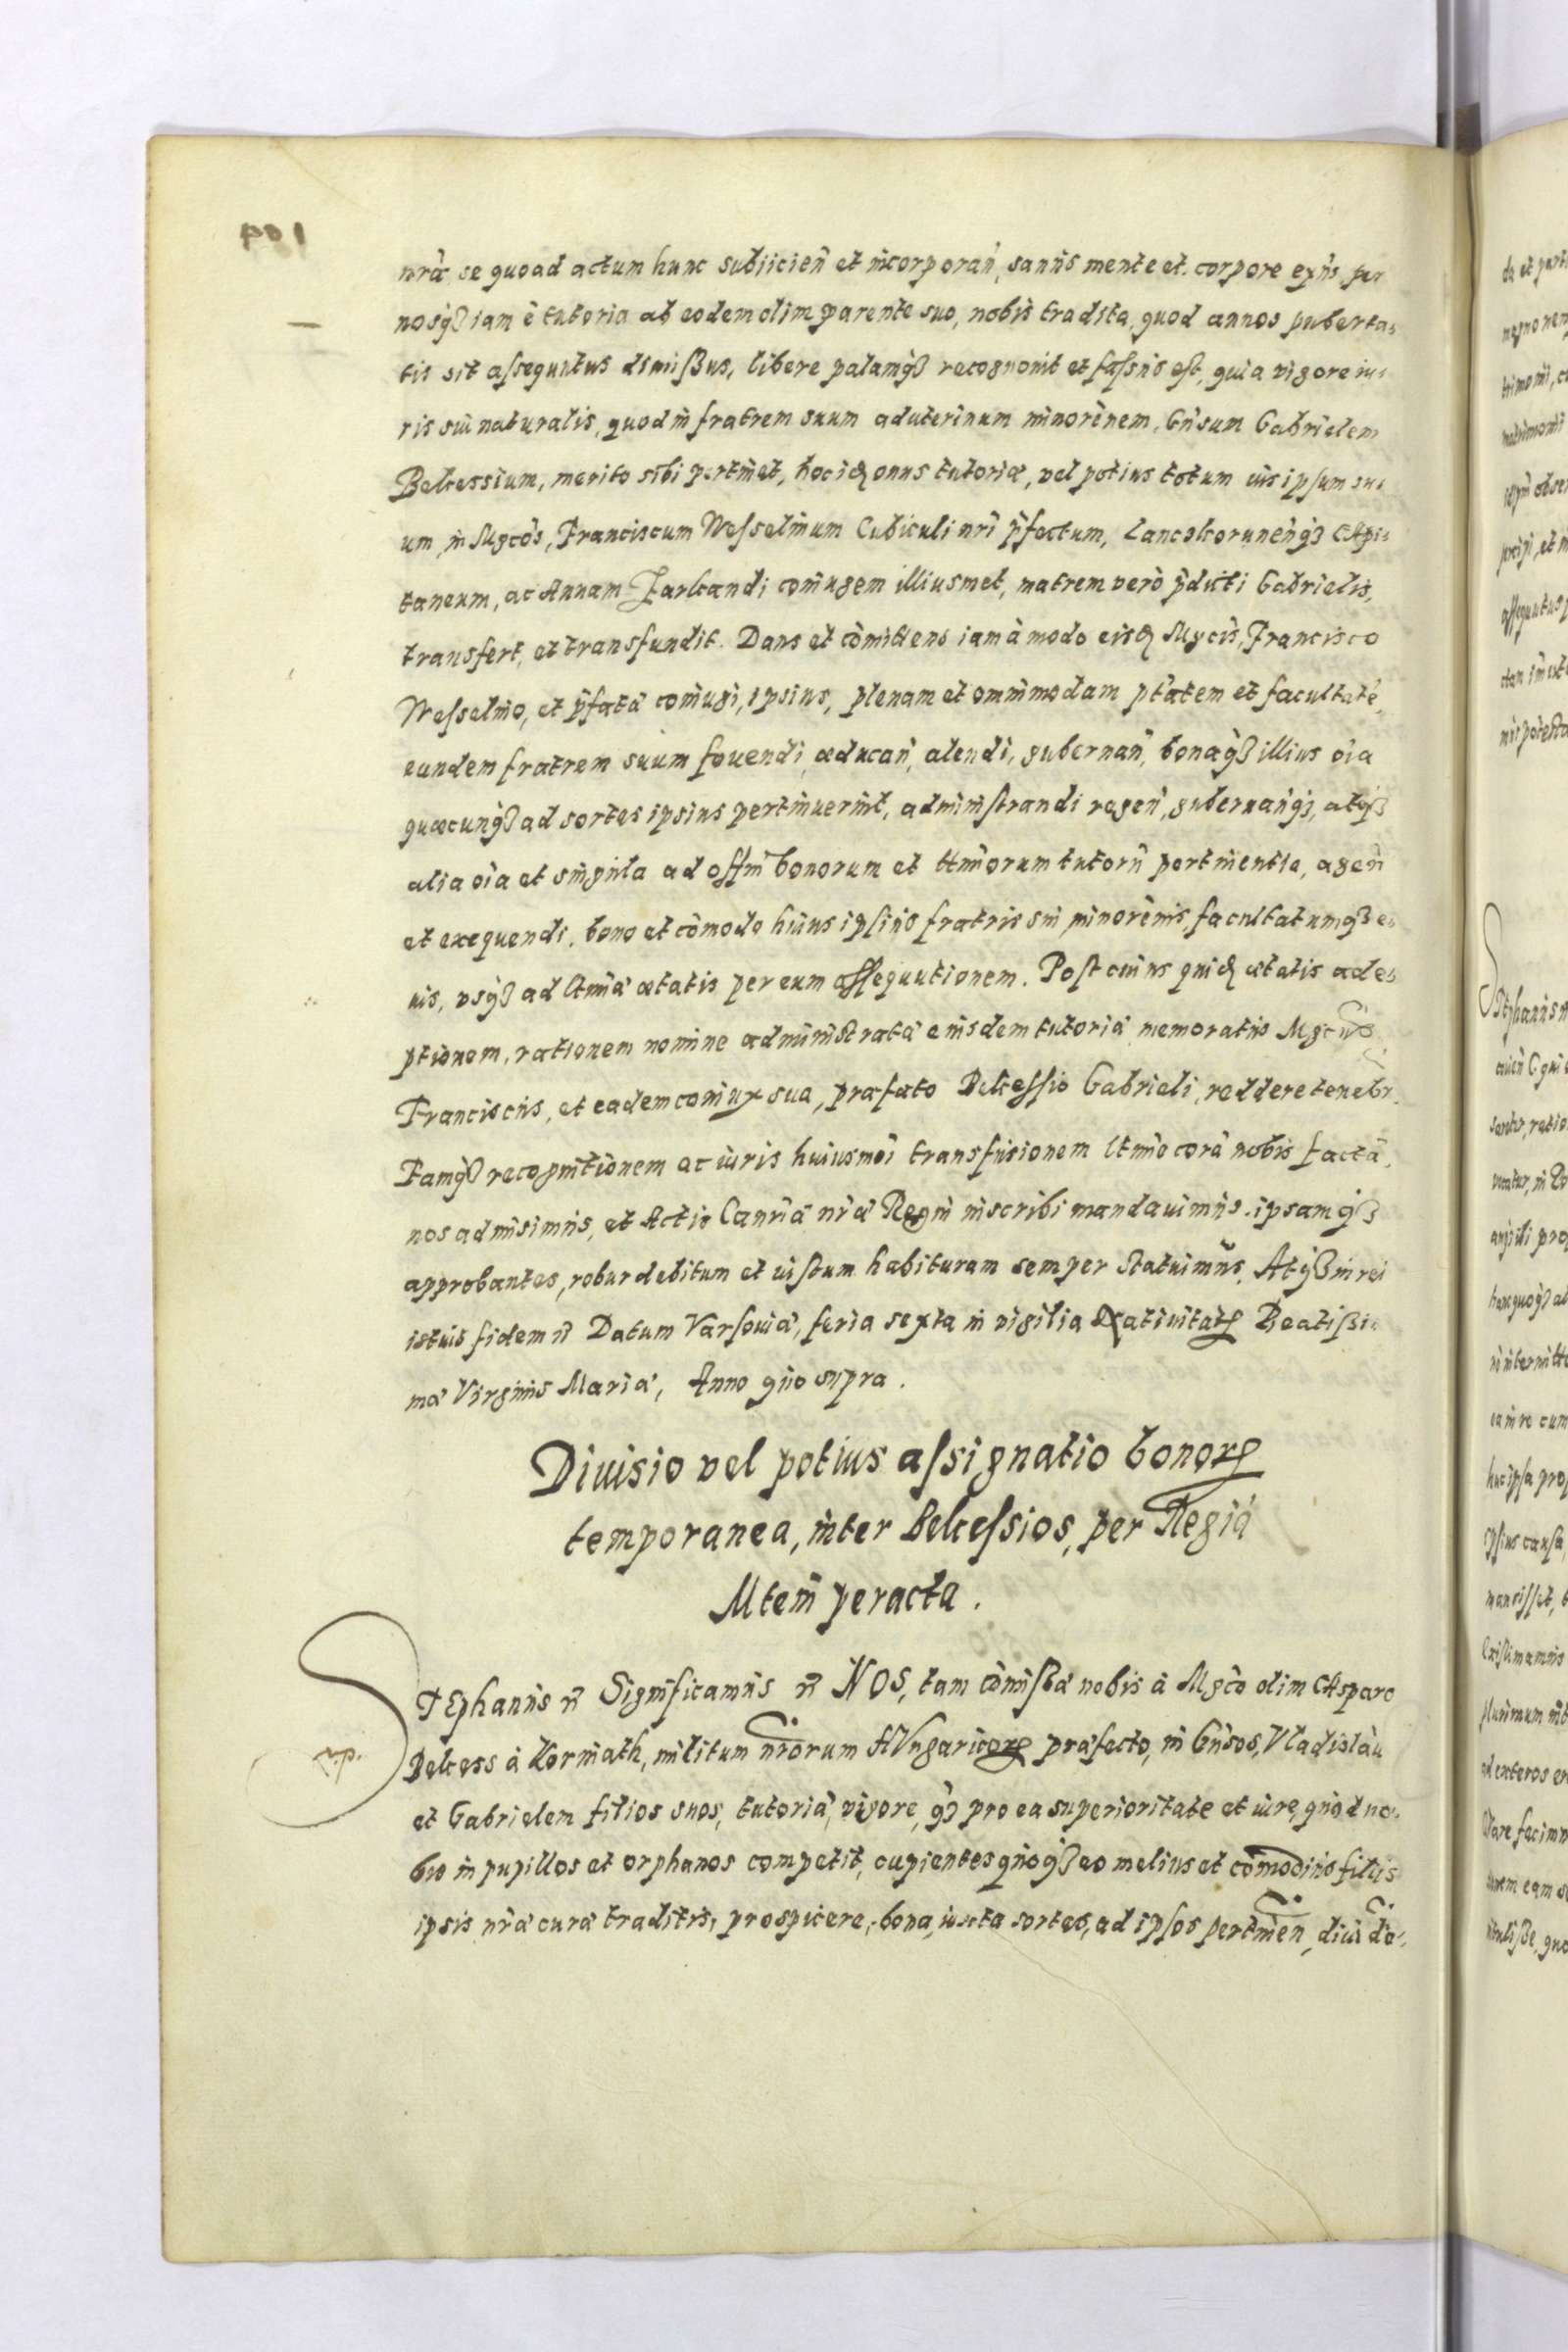 nræ se quoad actum hunc subiicień et incorporań, sanus mente et corpore exñs per
nosq iam è tutoria ab eodem olim parente suo, nobis tradita, quod annos puberta-
tis sit assequutus dimissus, libere palamq recognouit et fassus est, quia vigore iu-
ris sui naturalis, quod in fratrem suum aduterinum minorēnem, Gñsum Gabrielem
Bekessium, merito sibi pertinet, hoc id onus tutoriæ, vel potius totum ius ipsum su-
um in Mgcos, Franciscum Wesselinum Cubiculi nri pfectum, Lanczkorunenq Capi-
taneum, ac Annam Sarkandi coniugem illiusmet, matrem vero pdicti Gabrielis,
transfert, et transfundit. Dans et comittens iam à modo eisd Mgcis, Francisco
Wesselino, et pfatæ coniugi, ipsius, plenam et omnimodam ptatem et facultatē,
eundem fratrem suum fouendi, æducań, alendi, gubernań, bonaq illius oīa
quæcunq ad sortes ipsius pertinuerint, administrandi regeń, gubernanq, atq
alia oīa et singula ad offm bonorum et ttimorum tutorū pertinentia, ageń
et exequendi, bono et comodo huius ipsius fratris sui minorēnis, facultatumq e-
ius, vsq ad ltimæ ætatis per eum assequutionem. Post cuius quid ætatis ade-
ptionem, rationem nomine administratæ eiusdem tutoriæ memoratus Mgcus
Franciscus, et eadem coniux sua, præfato Bekessio Gabrieli, reddere tenebr.
Tamq recognitionem ac iuris huiusmoi transfusionem ltime corā nobis factā,
nos admisimus, et Actis Canriæ nræ Regni inscribi mandauimus. ipsamq
approbantes, robur debitum et iustum habituram semper statuimus. Atq in rei
istius fidem ñ Datum Varsouiæ, feria sexta in vigilia Natiuitatis Beatissi-
mæ Virginis Mariæ, Anno quo supra.
Diuisio vel potius assignatio bonor
temporanea, inter Bekessios, per Regiā
Mtem peracta.
STEphanus ñ Significamus ñ NOS, tam comissæ nobis à Mgco olim Casparo
Bekess à Korniath, militum nrorum HVngaricor præfecto, in Gñsos, Vladislāu
et Gabrielem filios suos, tutoriæ, vigore, q pro ea superioritate et iure, quod no-
bis in pupillos et orphanos competit, cupientes quoq eo melius et comodius filiis
ipsis nræ curæ traditis, prospicere, bona, iuxta sortes, ad ipsos pertineń, diuide-